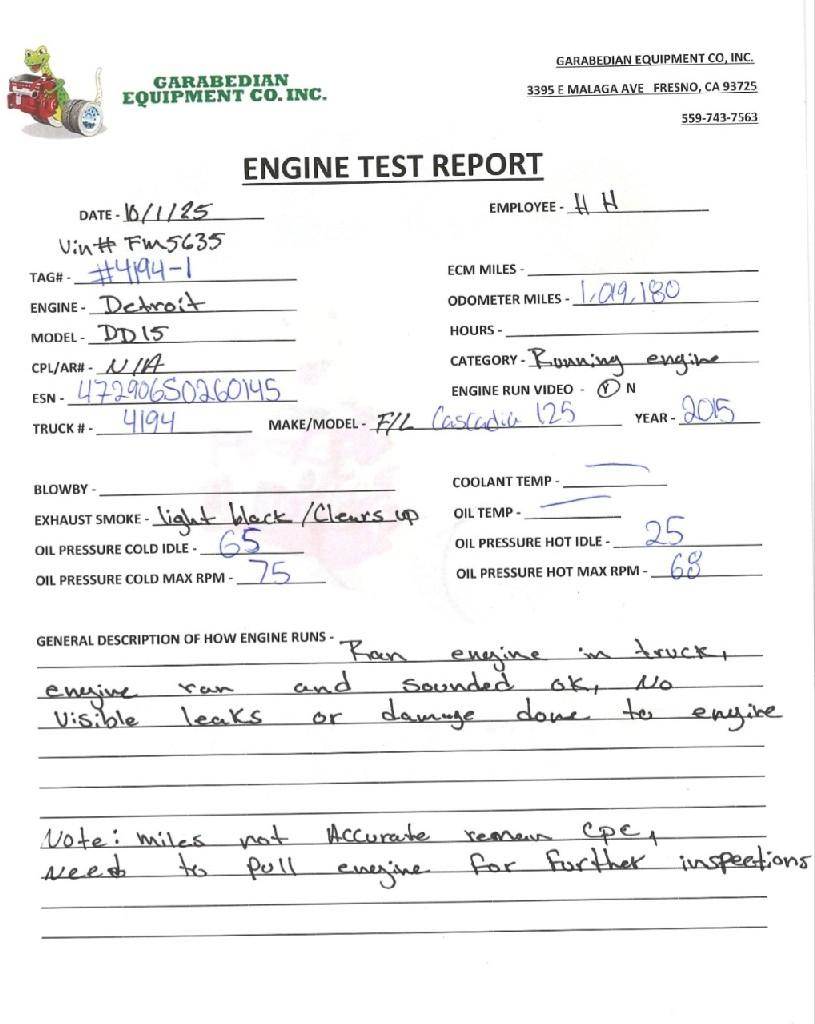 GARABEDIAN
EQUIPMENT CO. INC.
GARABEDIAN EQUIPMENT CO, INC.
3395 E MALAGA AVE FRESNO, CA 93725
559-743-7563
ENGINE TEST REPORT
DATE - 10/1/25
EMPLOYEE - H H
Vin# FM5635
TAG# - #4194-1
ECM MILES -
ENGINE - Detroit
ODOMETER MILES - 1,019,180
MODEL - DD15
HOURS -
CPL/AR# - N/A
CATEGORY - Running engine
ESN - 472906S0260145
ENGINE RUN VIDEO - Y N
TRUCK # - 4194
MAKE/MODEL - F/L Cascadia 125
YEAR - 2015
BLOWBY -
COOLANT TEMP -
EXHAUST SMOKE - light black / Clears up
OIL TEMP -
OIL PRESSURE COLD IDLE - 65
OIL PRESSURE HOT IDLE - 25
OIL PRESSURE COLD MAX RPM - 75
OIL PRESSURE HOT MAX RPM - 68
GENERAL DESCRIPTION OF HOW ENGINE RUNS - Ran engine in truck,
engine ran and sounded ok, No
Visible leaks or damage done to engine
Note: miles not Accurate reman CPC,
Need to pull engine for further inspections